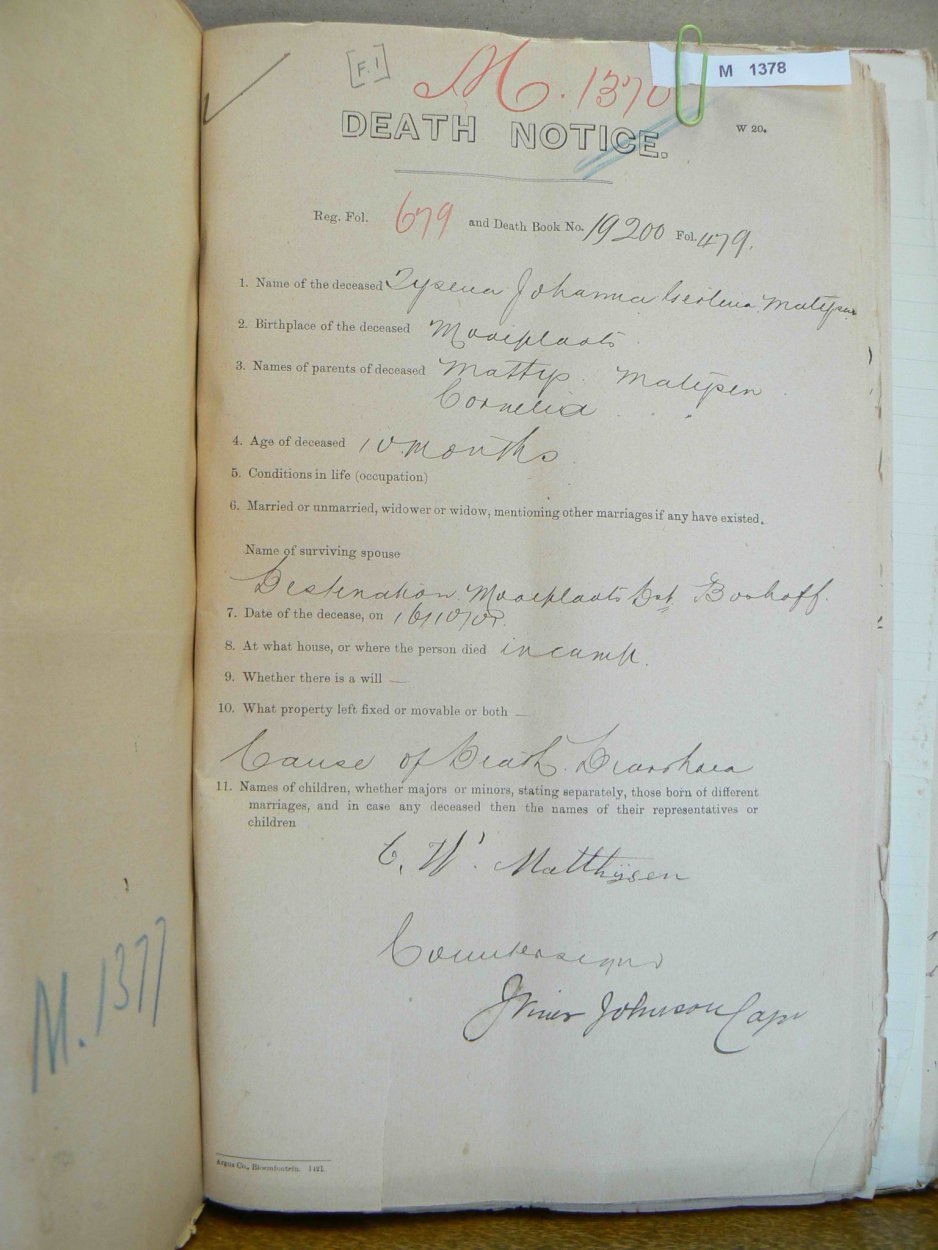 [F.1]
M. 1370
M 1378
DEATH NOTICE.
W 20.
Reg. Fol. 679 and Death Book No. 19200 Fol. 479.
1. Name of the deceased Johanna
2. Birthplace of the deceased Mooiplaats
3. Names of parents of deceased Mattys Matijsen
Cornelia "
4. Age of deceased 10 months
5. Conditions in life (occupation)
6. Married or unmarried, widower or widow, mentioning other marriages if any have existed.
Name of surviving spouse
Destination Mooiplaats Dst Boshoff.
7. Date of the decease, on
8. At what house, or where the person died in camp.
9. Whether there is a will —
10. What property left fixed or movable or both —
Cause of Death. Diarrhaea
11. Names of children, whether majors or minors, stating separately, those born of different
marriages, and in case any deceased then the names of their representatives or
children
C. W. Matthijsen
Countersigned
Johnson Capt
Argus Co., Bloemfontein. 1421.
M. 1377